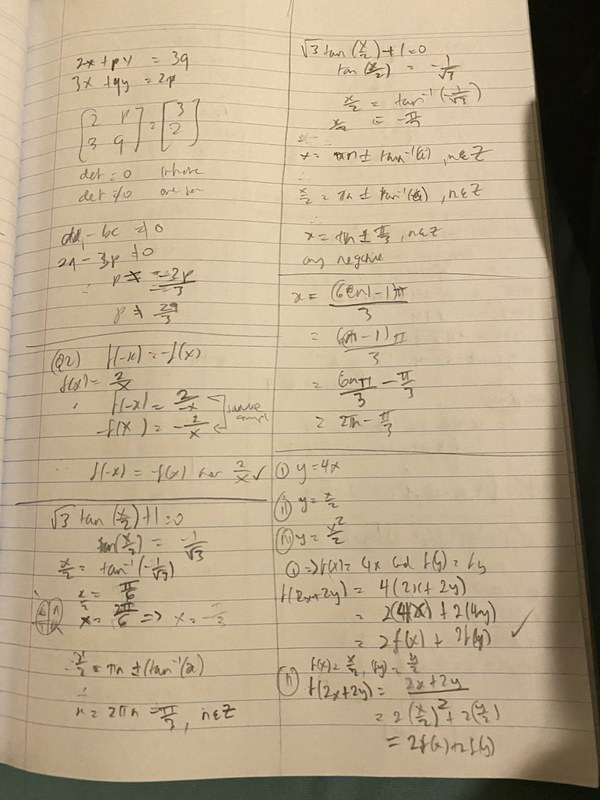 2x + py = 3q
3x + qy = 2p
[2 p
3 q] = [3
2]
det = 0
det ≠ 0
- bc ≠ 0
2q - 3p ≠ 0
∴ p ≠ -2p/3
p ≠ 2q/3
Q2) f(-x) = -f(x)
f(x) = 2/x
∴ f(-x) = 2/-x
-f(x) = -2/x
∴ f(-x) = -f(x) for 2/x ✓
√3 tan(x/2) + 1 = 0
tan(x/2) = -1/√3
x/2 = tan⁻¹(-1/√3)
x/2 = π/6
x = 2π/6 => x =
x/2 = πn ± (tan⁻¹(a)
∴
x = 2πn - π/3, n∈Z
√3 tan(x/2) + 1 = 0
tan(x/2) = -1/√3
x/2 = tan⁻¹(-1/√3)
x/2 = -π/6
x = πn ± tan⁻¹(a), n∈Z
∴
x/2 = πn ± tan⁻¹(a), n∈Z
∴
x = πn ± π/3, n∈Z
any negative
x = (6(n)-1)π/3
= (6n-1)π/3
= 6nπ/3 - π/3
= 2πn - π/3
(i) y = 4x
(ii) y = x/2
(iii) y = x²/2
(i) => f(x) = 4x and f(y) = 4y
f(2x+2y) = 4(2x+2y)
= 2(4x) + 2(4y)
= 2f(x) + 2f(y) ✓
(ii) f(x) = x/2, f(y) = y/2
f(2x+2y) = 2x+2y/2
= 2(x/2) + 2(y/2)
= 2f(x)+2f(y)